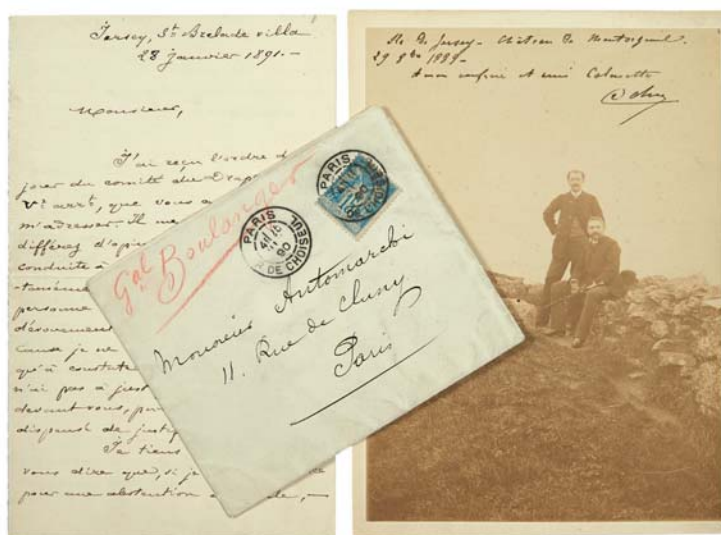 Jersey, St Brelade villa
28 Janvier 1891.-
Monsieur,
J'ai reçu l'ordre d
jour du comité du Drap
Ve arrt, que vous a
m'adresser. Il me
différez d'opi
conduite à
personne
dévouement
cause je ne
qu'à constate
n'ai pas à just
devant vous, pui
dispensé de justi
Je tiens
vous dire que, si je
pour une abstention
Gal Boulanger
PARIS
90
R. DE CHOISEUL
PARIS
90
DE CHOISEUL
Monsieur Antomarchi
11. Rue de Cluny
Paris
Ile de Jersey - Château de Montorgueil.
29 8bre 1889-
A mon confrère et ami